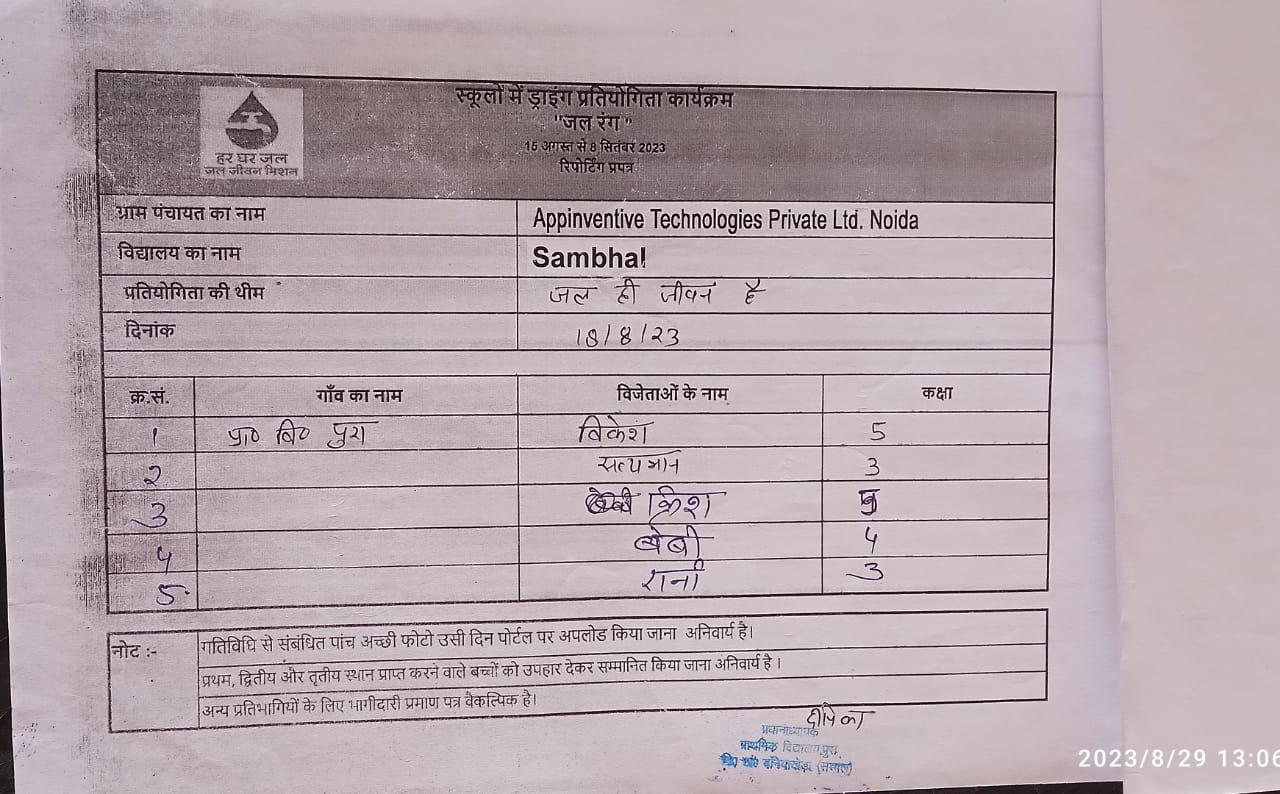 स्कूलों में ड्राइंग प्रतियोगिता कार्यक्रम
"जल रंग"
15 अगस्त से 8 सितंबर 2023
रिपोर्टिंग प्रपत्र
हर घर जल
जल जीवन मिशन
ग्राम पंचायत का नाम Appinventive Technologies Private Ltd. Noida
विद्यालय का नाम Sambhal
प्रतियोगिता की थीम जल ही जीवन है
दिनांक 18/8/23
क्र.सं. गाँव का नाम विजेताओं के नाम कक्षा
1 प्रा० वि० पुरा विकेश 5
2 3
3 क्रिश 5
4 बेबी 4
5 3
नोट :- गतिविधि से संबंधित पांच अच्छी फोटो उसी दिन पोर्टल पर अपलोड किया जाना अनिवार्य है।
प्रथम, द्वितीय और तृतीय स्थान प्राप्त करने वाले बच्चों को उपहार देकर सम्मानित किया जाना अनिवार्य है ।
अन्य प्रतिभागियों के लिए भागीदारी प्रमाण पत्र वैकल्पिक है।
दीपिका
प्रधानाध्यापक
प्राथमिक विद्यालय पुरा
2023/8/29 13:06